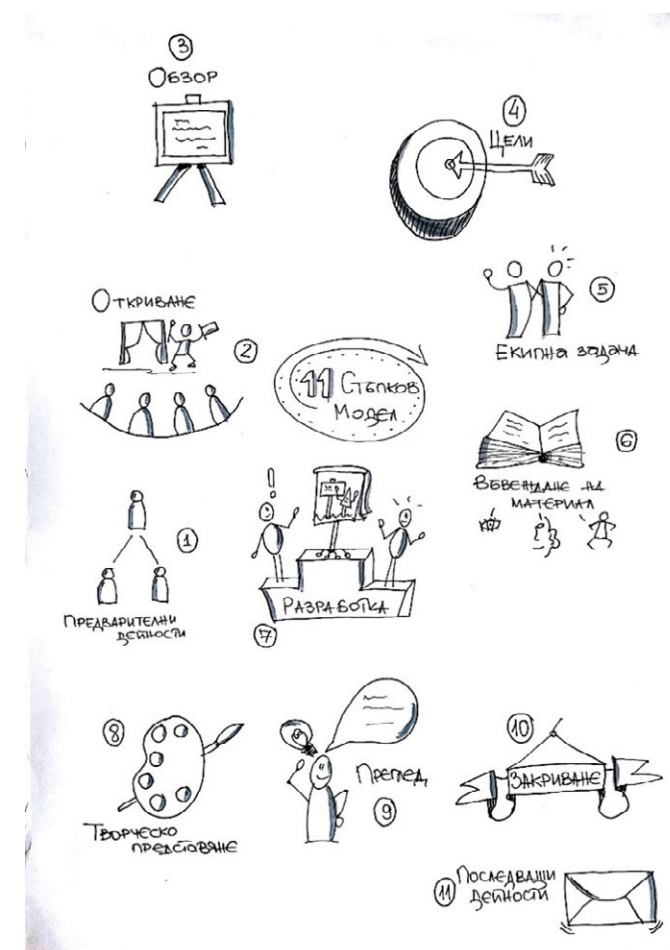 3
Обзор
4
Цели
Откриване
2
5
Екипна задача
11 Стъпков
Модел
6
Въвеждане на
материал
1
Предварителни
дейности
Разработка
7
8
Творческо
представяне
Преглед
9
10
Закриване
11
Последващи
дейности